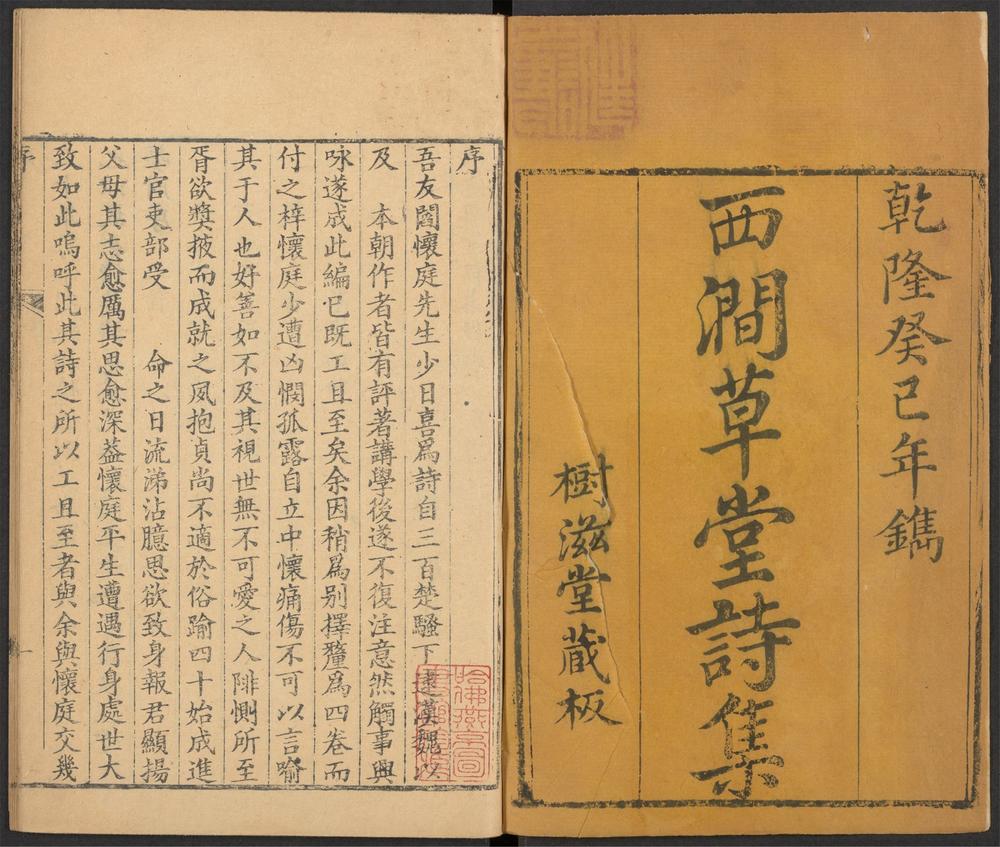 乾隆癸巳年鐫
西澗草堂詩集
樹滋堂藏板
序
吾友閻懷庭先生少日喜爲詩自三百楚騷下逮漢魏以
及　本朝作者皆有評著講學後遂不復注意然觸事興
咏遂成此編已既工且至矣余因稍爲别擇釐爲四卷而
付之梓懷庭少遭凶憫孤露自立中懷痛傷不可以言喻
其于人也好善如不及其視世無不可愛之人陫惻所至
胥欲奬掖而成就之夙抱貞尚不適於俗踰四十始成進
士官吏部受　　命之日流涕沾臆思欲致身報君顯揚
父母其志愈厲其思愈深葢懷庭平生遭遇行身處世大
致如此嗚呼此其詩之所以工且至者與余與懷庭交幾
序
一